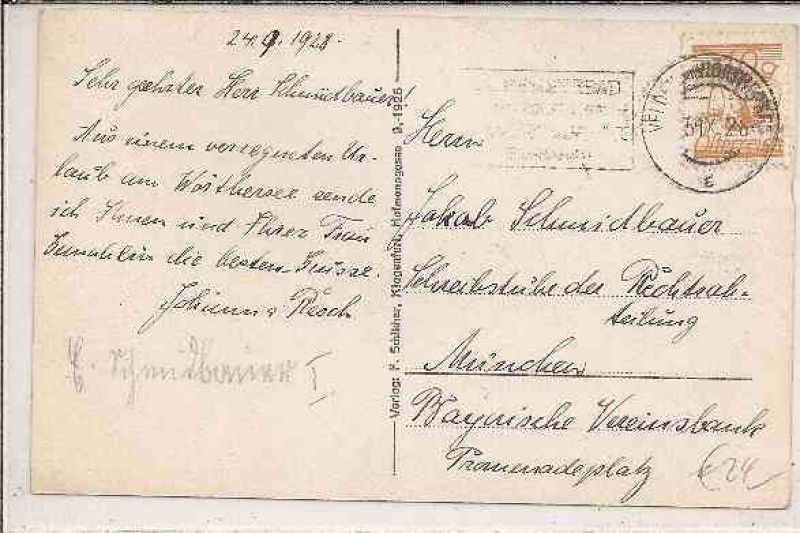 24.9.1928.
Sehr geehrter Herr Schmidbauer!
Aus einem verregneten Ur-
laub am Wörthersee sende
ich Ihnen und Ihrer Frau
Gemahlin die besten Grüsse.
Johann Resch
E. Schmidbauer I.
Verlag: F. Schilcher, Klagenfurt, Hofmanngasse 9.-1925
Herrn
Jakob Schmidbauer
Schreibstube der Rechtsab-
teilung
München
Bayerische Vereinsbank
Promenadeplatz